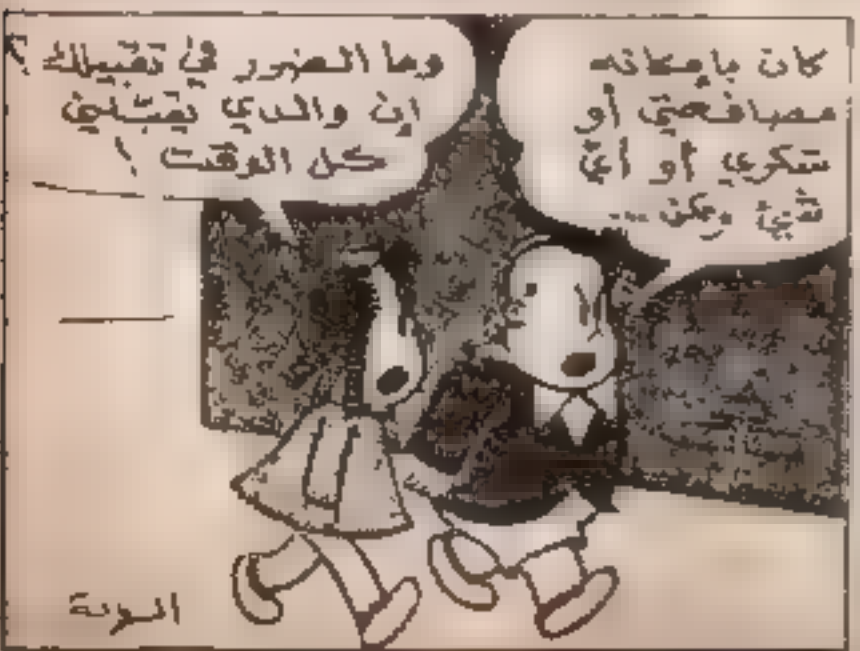 كان بإمكانه
مصافحتي أو
شكري أو أي
شيئ ولكن ...
وما الضرر في تقبيلك ؟
إن والدي يقبّلني
كل الوقت !